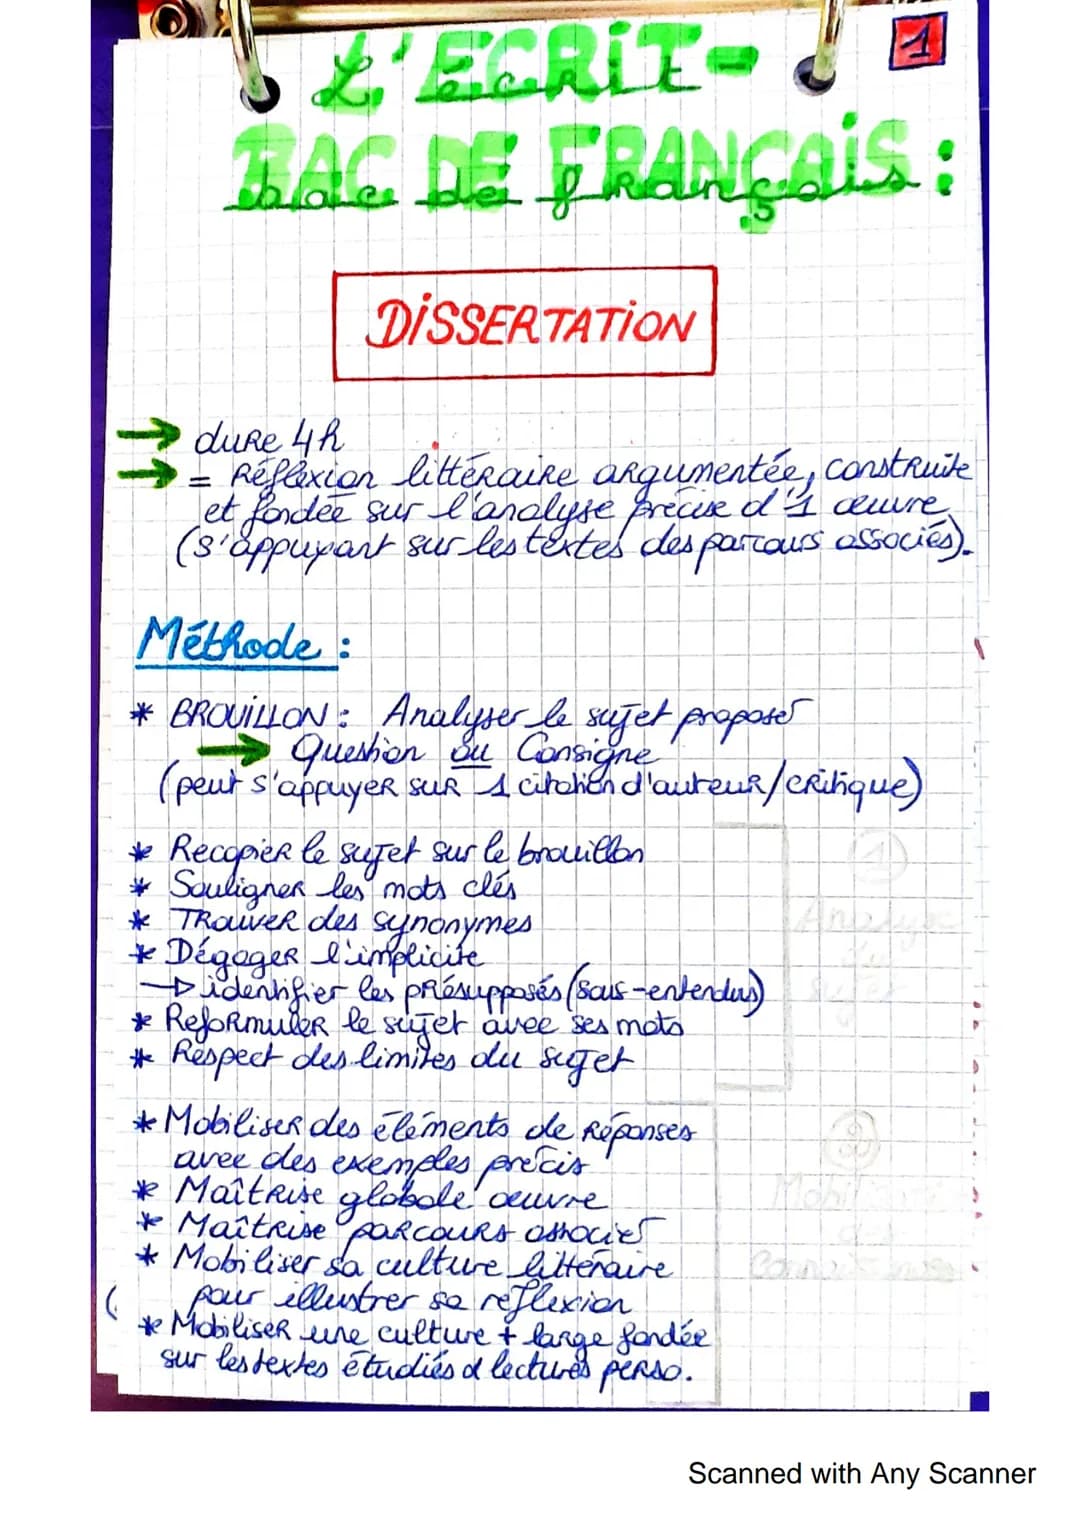 1
L'ECRIT-
BAC DE FRANÇAIS :
bac de français
DISSERTATION
→ dure 4h
→ = Réflexion littéraire argumentée, construite
et fondée sur l'analyse précise d'1 œuvre
(s'appuyant sur les textes des parcours associés).
Méthode :
* BROUILLON : Analyser le sujet proposer
→ Question ou Consigne
(peut s'appuyer sur 1 citation d'auteur/critique)
* Recopier le sujet sur le brouillon
* Souligner les mots clés
* Trouver des synonymes
* Dégager l'implicite
→ identifier les présupposés (sous-entendus)
* Reformuler le sujet avec ses mots
* Respect des limites du sujet
① Analyse
du
sujet
* Mobiliser des éléments de réponses
avec des exemples précis
* Maîtrise globale œuvre
* Maîtrise parcours associés
* Mobiliser sa culture littéraire
pour illustrer sa reflexion
* Mobiliser une culture + large fondée
sur les textes étudiés d lectures perso.
②
Scanned with Any Scanner